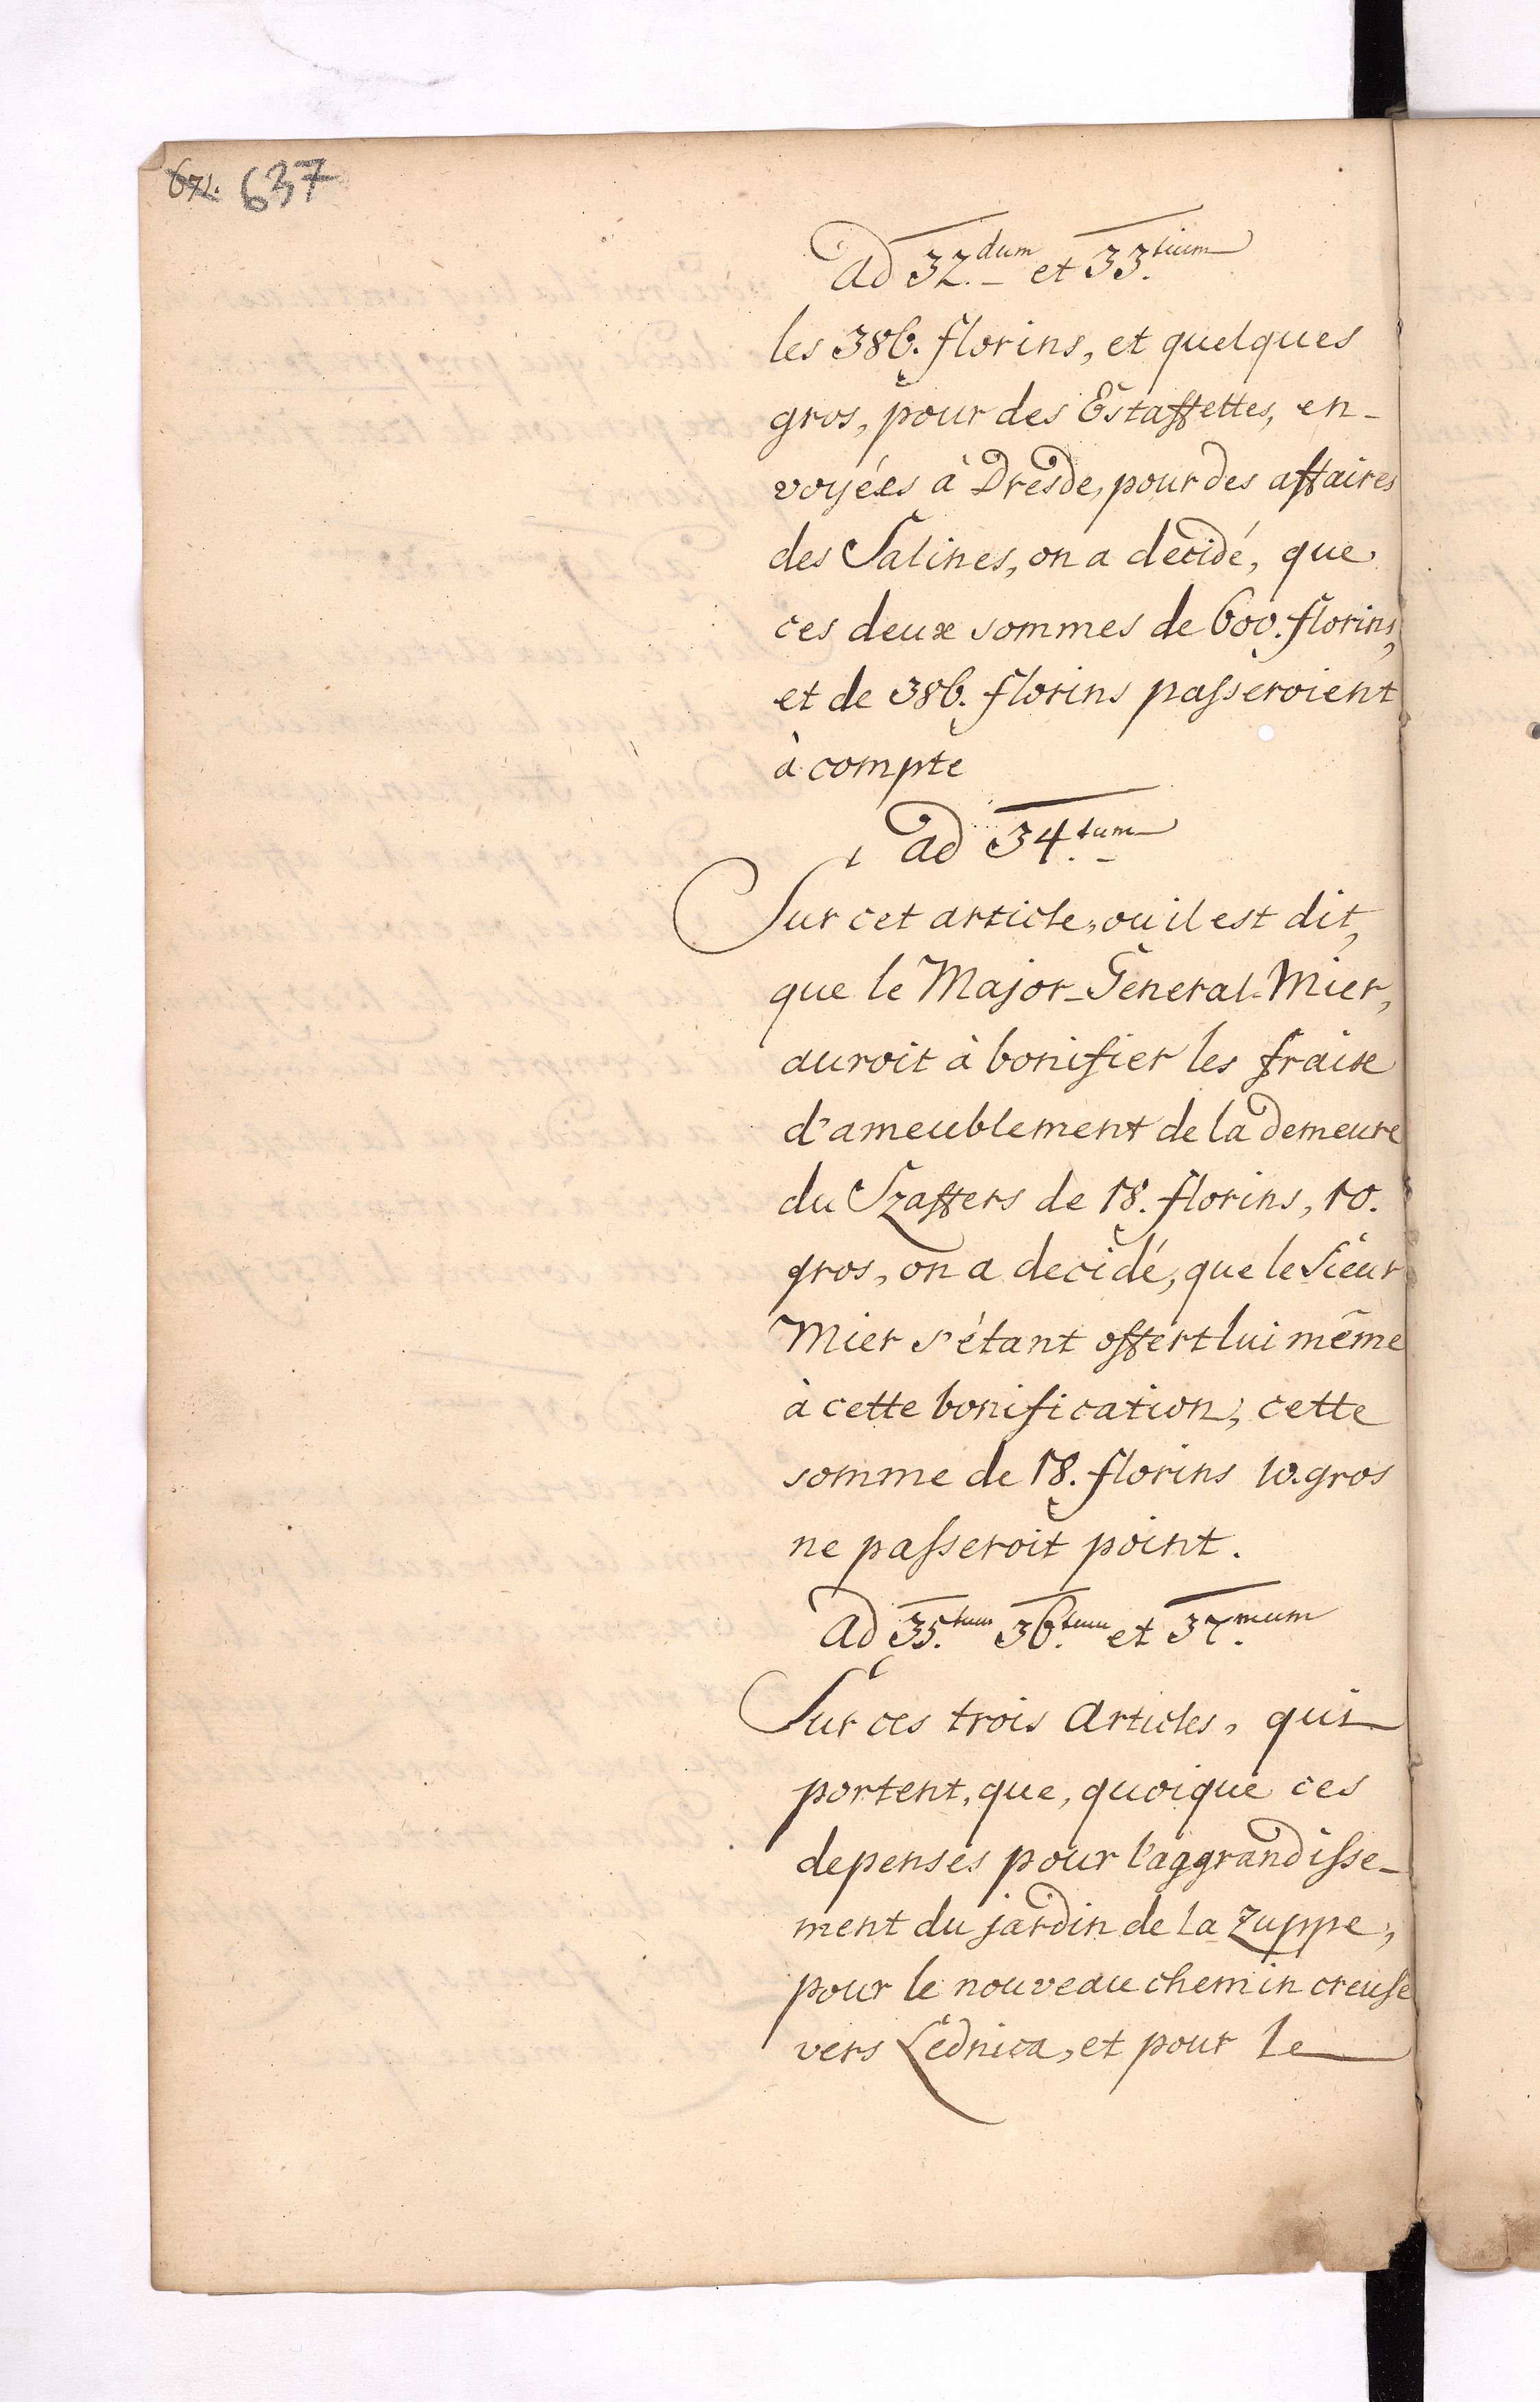 672. 637
ad 32.dum et 33.tium
les 386. florins, et quelques
gros, pour des Estaffettes, en-
voyées à Dresde, pour des affaires
des Salines, on a decidé, que
ces deux sommes de 600. florins,
et de 386. florins passeroient
à compte
ad 34.tum
Sur cet article, ou il est dit,
que le Major-General-Mier,
auroit à bonifier les fraix
d'ameublement de la demeure
du Szaffers de 18. florins, 10.
gros, on a decidé, que le Sieur
Mier s'étant offert lui même
à cette bonification, cette
somme de 18. florins 10. gros
ne passeroit point.
ad 35.tum 36.tum et 37.mum
Sur ces trois articles, qui
portent, que, quoique ces
depenses pour l'aggrandisse-
ment du jardin de la Zuppe,
pour le nouveau chemin creuse
vers Lednica, et pour le